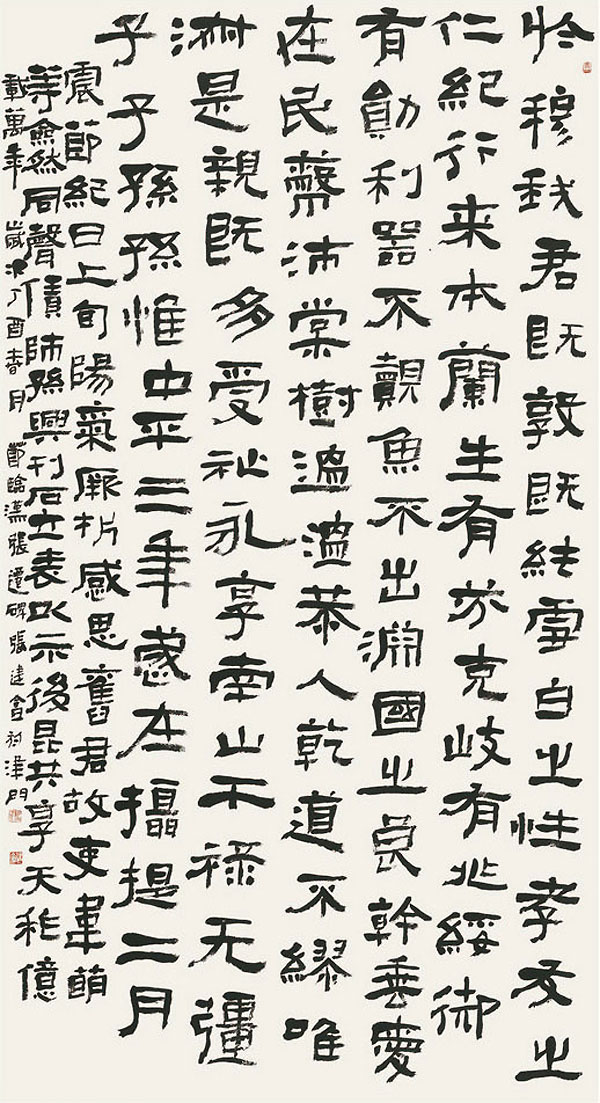 於穆我君既敦既純雪白之性孝友之
仁紀行来本蘭生有芬克岐有兆綏御
有勛利器不覿魚不出淵國之良幹垂愛
在民蔽沛棠樹溫溫恭人乾道不繆唯
淑是親既多受祉永享南山干祿无疆
子子孫孫惟中平三年歲在攝提二月
震節紀日上旬陽氣厥析感思舊君故吏韋萌
等僉然同聲賃師孫興刊石立表以示後昆共享天祚億
載萬年 歲次丁酉春月 節臨漢張遷碑 張建會於津門